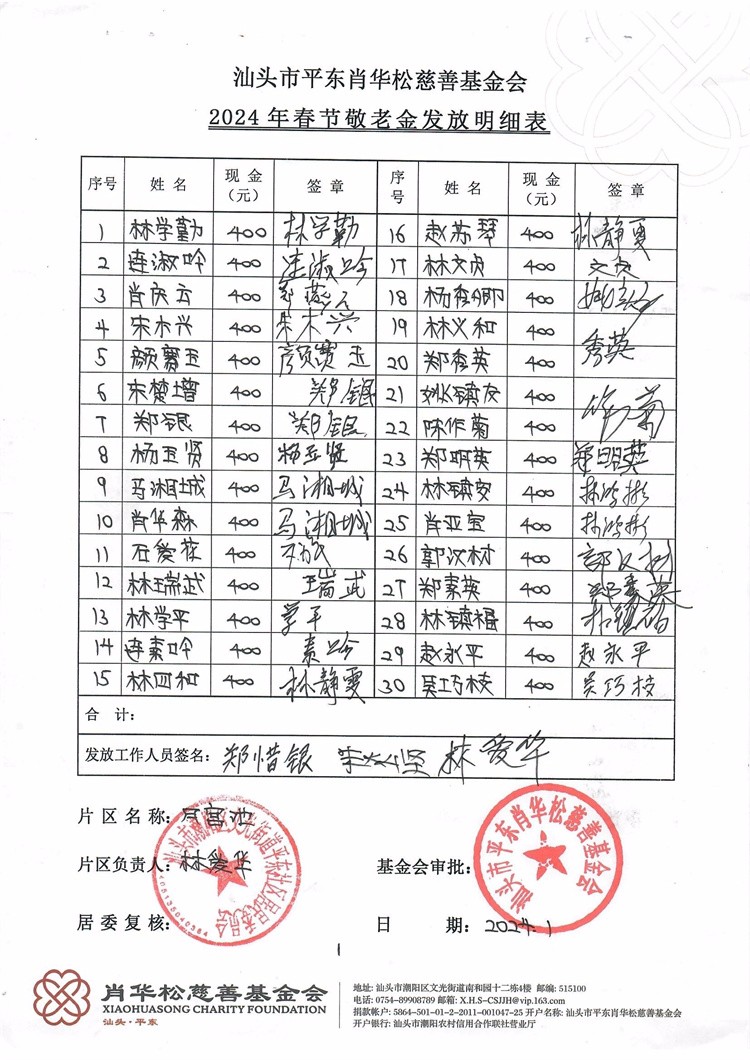 汕头市平东肖华松慈善基金会
2024年春节敬老金发放明细表
序号 姓名 现金（元） 签章 序号 姓名 现金（元） 签章
1 林学勤 400 林学勤 16 赵苏琴 400 林静夏
2 连淑吟 400 连淑吟 17 林文贞 400 文贞
3 肖庆云 400 18 杨秀卿 400
4 宋木兴 400 宋木兴 19 林义和 400
5 颜赛玉 400 颜赛玉 20 郑秀英 400 秀英
6 宋楚增 400 郑银 21 姚镇友 400
7 郑银 400 郑银 22 陈作菊 400 作菊
8 杨玉贤 400 杨玉贤 23 郑明英 400 郑明英
9 马湘城 400 马湘城 24 林镇安 400
10 肖华森 400 马湘城 25 肖亚宝 400
11 石爱 400 26 郭汉材 400 郭汉材
12 林瑞武 400 瑞武 27 郑素英 400 郑素英
13 林学平 400 学平 28 林镇楅 400
14 连素吟 400 素吟 29 赵永平 400 赵永平
15 林四和 400 林静夏 30 吴巧枝 400 吴巧枝
合 计：
发放工作人员签名：郑惜银 林爱华
片区名称：
片区负责人：林爱华 基金会审批：
居委复核： 日 期：2024.1
汕头市平东肖华松慈善基金会
文光街道平东社区居民委员会
1
肖华松慈善基金会
XIAOHUASONG CHARITY FOUNDATION
汕头·平东
地址: 汕头市潮阳区文光街道南和园十二栋4楼 邮编: 515100
电话: 0754-89908789 邮箱: X.H.S-CSJJH@vip.163.com
捐款帐户: 5864-501-01-2-2011-001047-25 开户名称: 汕头市平东肖华松慈善基金会
开户银行: 汕头市潮阳农村信用合作联社营业厅